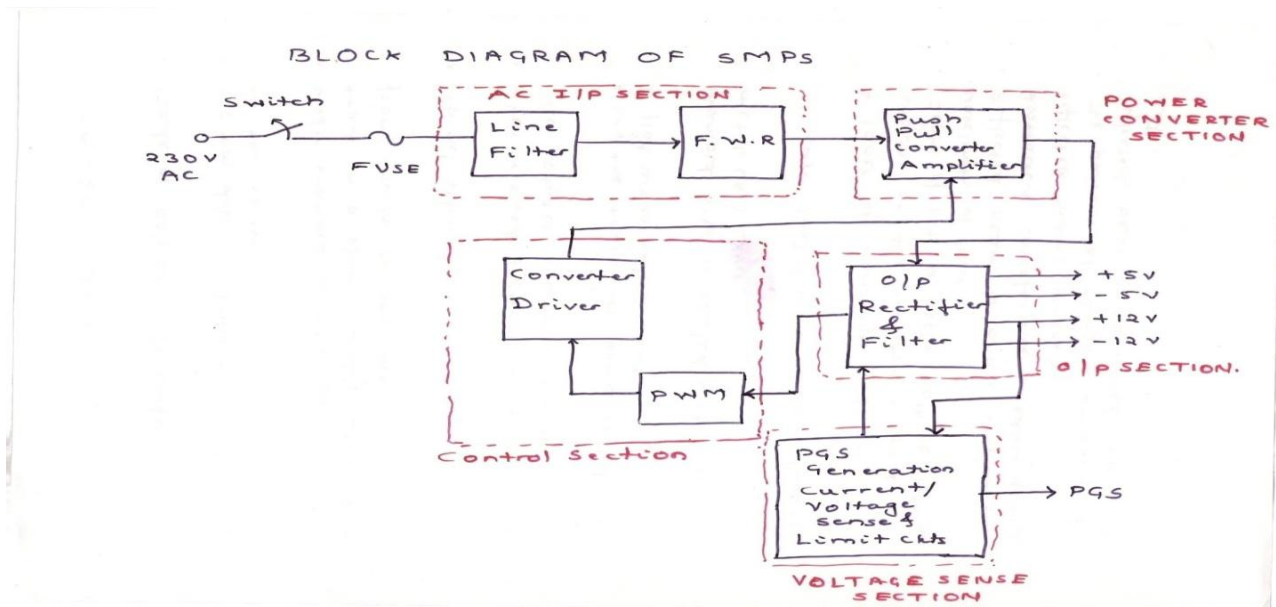 BLOCK DIAGRAM OF SMPS
Switch
230V
AC
FUSE
AC I/P SECTION
Line
Filter
F.W.R
Push
Pull
Converter
Amplifier
POWER
CONVERTER
SECTION
Converter
Driver
PWM
Control Section
O/P
Rectifier
&
Filter
+5V
-5V
+12V
-12V
O/P SECTION.
PGS
Generation
Current/
Voltage
Sense &
Limit Ckts
PGS
VOLTAGE SENSE
SECTION